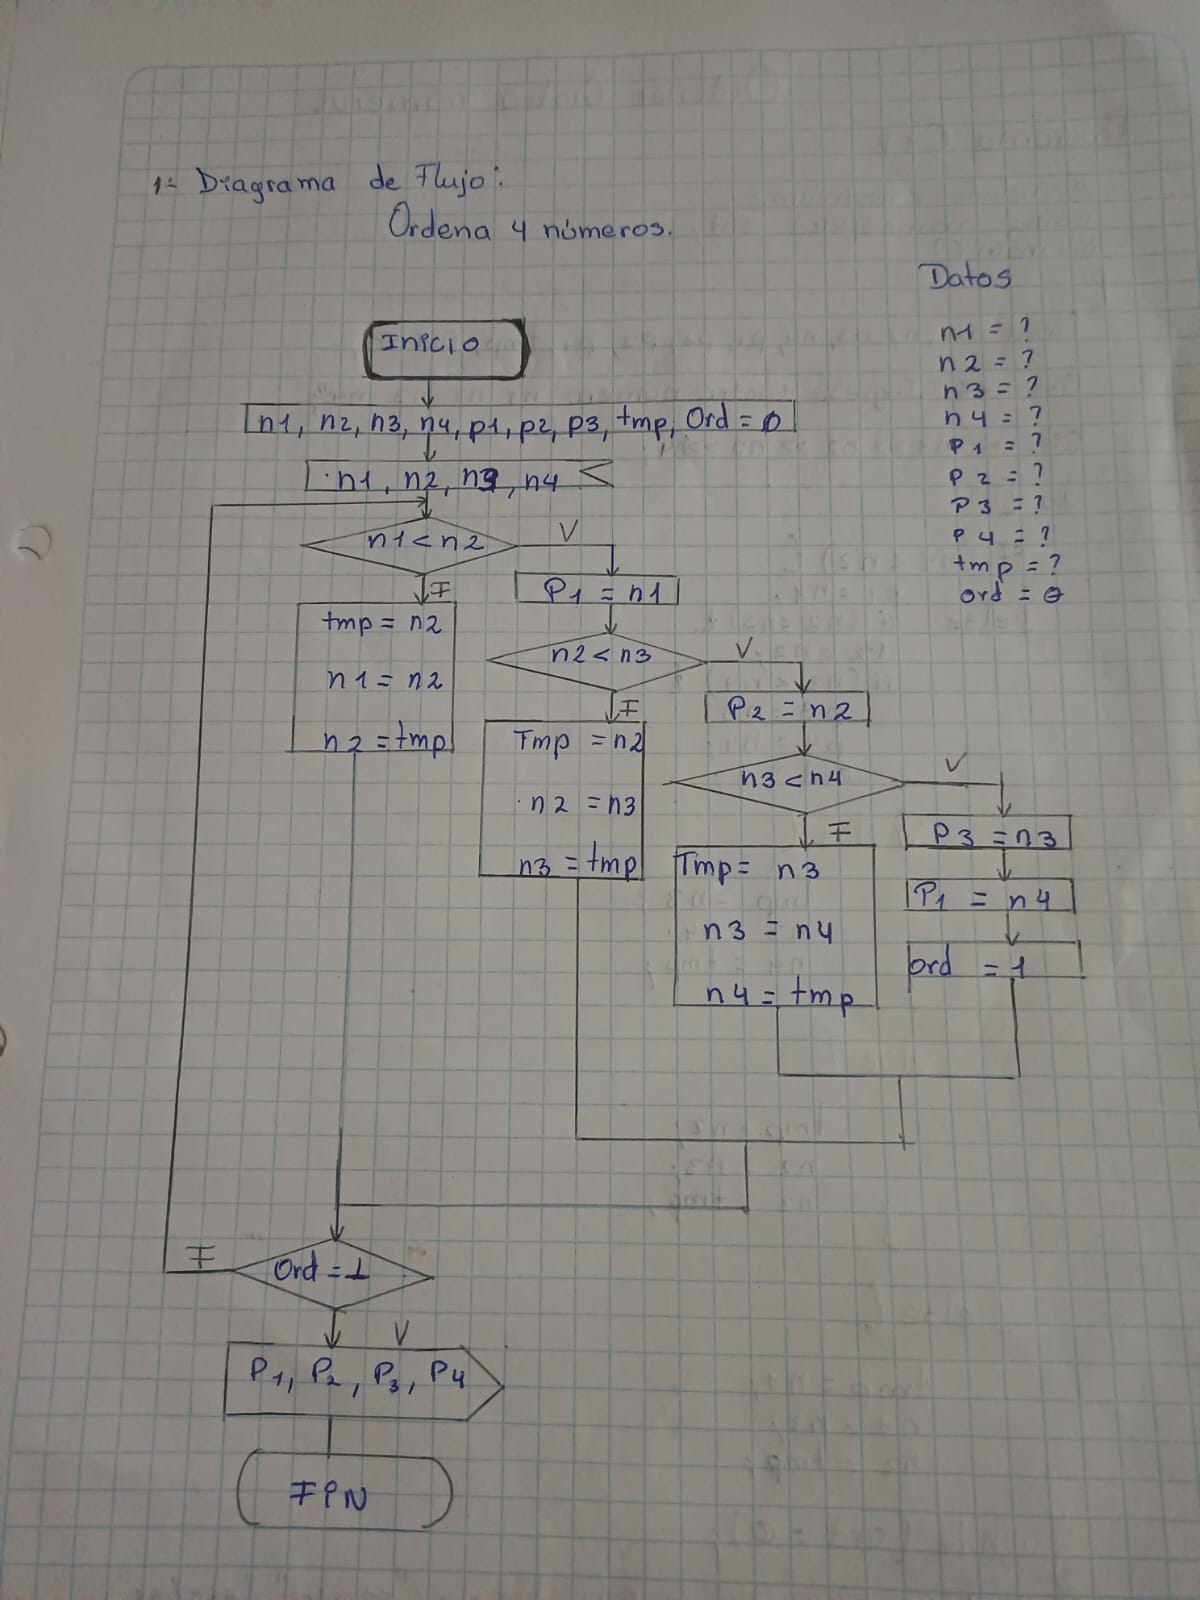 1.- Diagrama de Flujo:
Ordena 4 números.
Datos
n1 = ?
n2 = ?
n3 = ?
n4 = ?
P1 = ?
P2 = ?
P3 = ?
P4 = ?
tmp = ?
ord = 0
Inicio
n1, n2, n3, n4, p1, p2, p3, tmp, Ord = 0
n1, n2, n3, n4
n1 < n2
V
F
P1 = n1
tmp = n2
n1 = n2
n2 = tmp
n2 < n3
V
F
P2 = n2
Tmp = n2
n2 = n3
n3 = tmp
n3 < n4
V
F
P3 = n3
P1 = n4
ord = 1
Tmp = n3
n3 = n4
n4 = tmp
F
Ord = 1
V
P1, P2, P3, P4
FIN